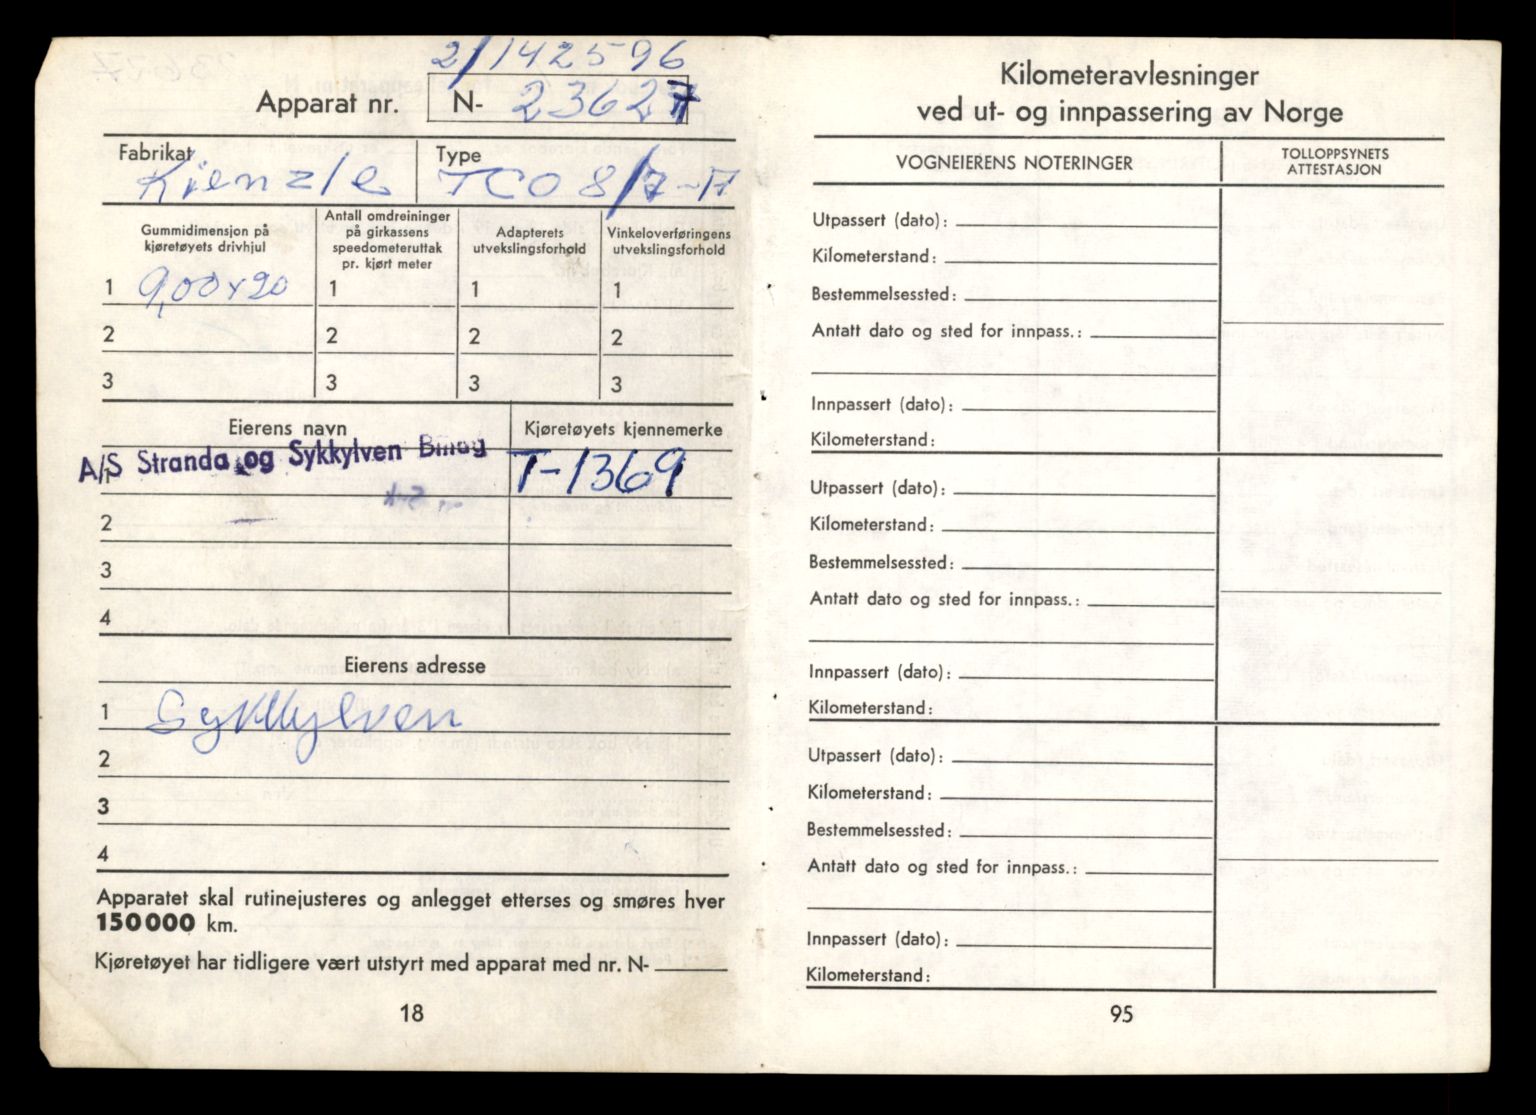 2/142596
Apparat nr. N- 23627
Fabrikat Type
Kienzle TCO 8/7-A
Gummidimensjon på kjøretøyets drivhjul
Antall omdreininger på girkassens speedometeruttak pr. kjørt meter
Adapterets utvekslingsforhold
Vinkeloverføringens utvekslingsforhold
1 9,00x20 1 1 1
2 2 2 2
3 3 3 3
Eierens navn Kjøretøyets kjennemerke
1 A/S Stranda og Sykkylven Billag T-1369
2
3
4
Eierens adresse
1 Sykkylven
2
3
4
Apparatet skal rutinejusteres og anlegget etterses og smøres hver
150000 km.
Kjøretøyet har tidligere vært utstyrt med apparat med nr. N-
18
Kilometeravlesninger
ved ut- og innpassering av Norge
VOGNEIERENS NOTERINGER
TOLLOPPSYNETS
ATTESTASJON
Utpassert (dato):
Kilometerstand:
Bestemmelsessted:
Antatt dato og sted for innpass.:
Innpassert (dato):
Kilometerstand:
Utpassert (dato):
Kilometerstand:
Bestemmelsessted:
Antatt dato og sted for innpass.:
Innpassert (dato):
Kilometerstand:
Utpassert (dato):
Kilometerstand:
Bestemmelsessted:
Antatt dato og sted for innpass.:
Innpassert (dato):
Kilometerstand:
95